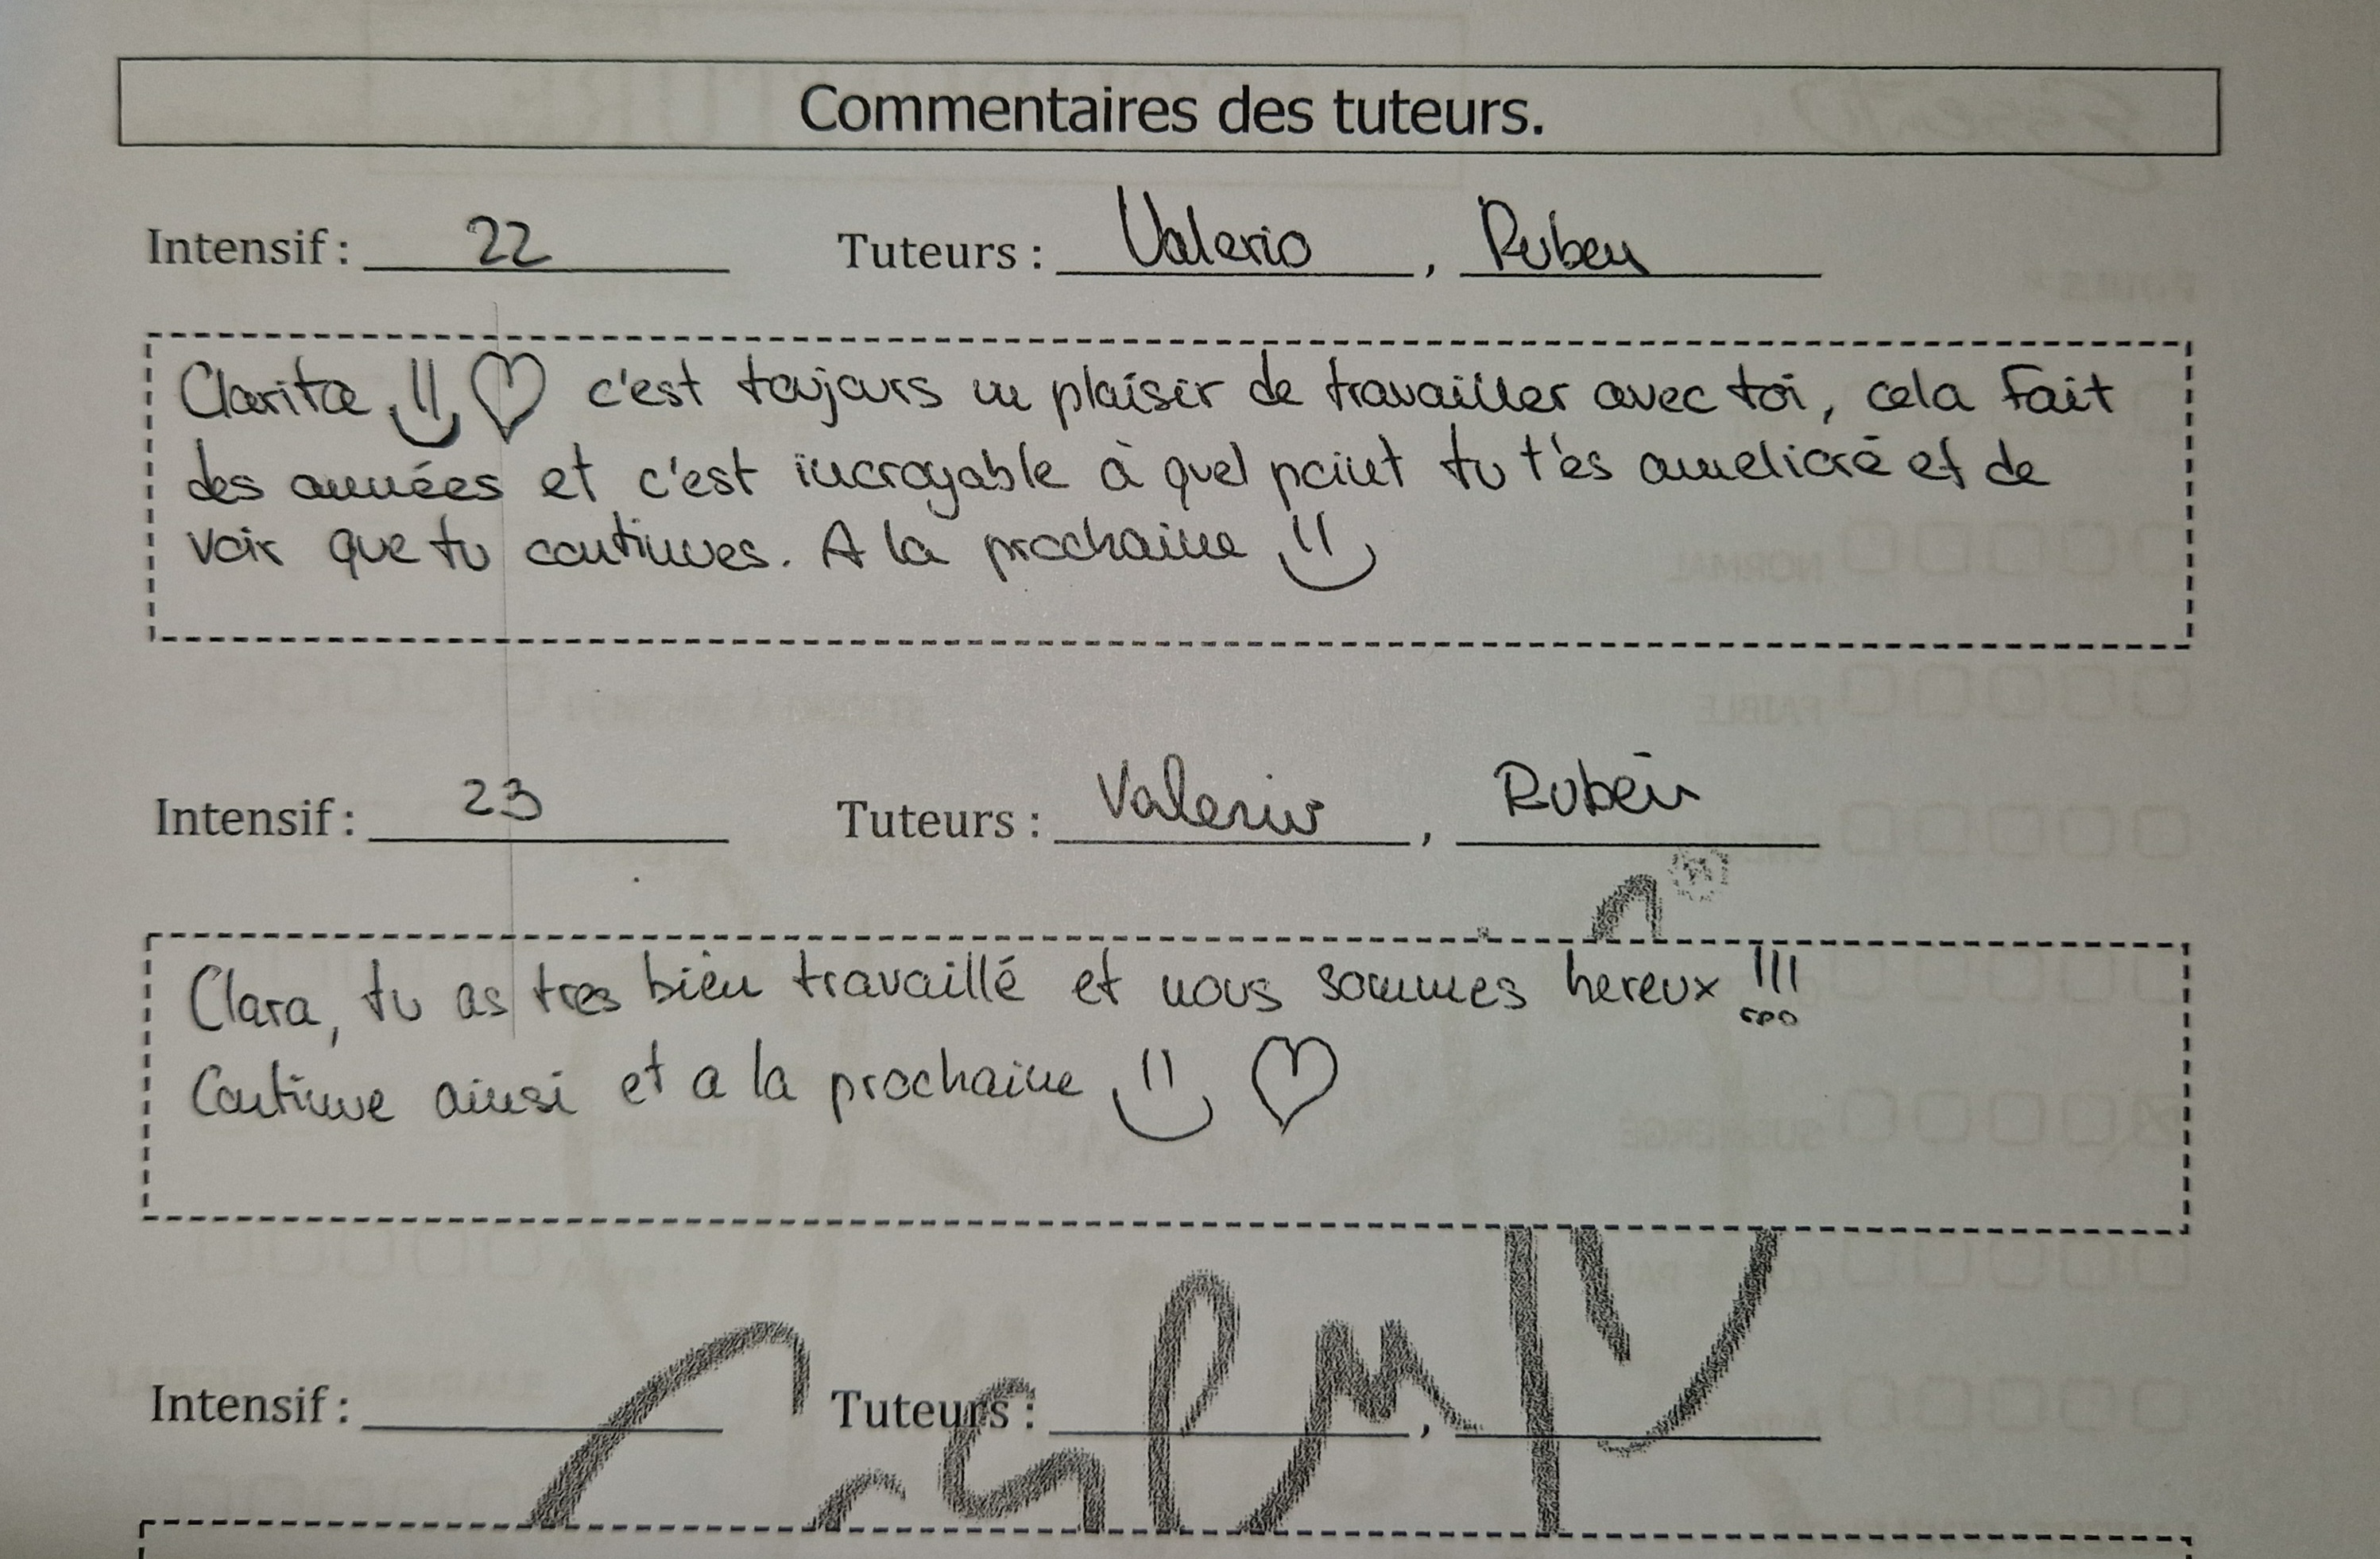 Commentaires des tuteurs.
Intensif : 22 Tuteurs : Valerio , Ruben
Clarita !! c'est toujours un plaisir de travailler avec toi, cela fait
des années et c'est incroyable à quel point tu t'es amelioré et de
voir que tu continues. A la prochaine !!
Intensif : 23 Tuteurs : Valerio , Rubén
Clara, tu as tres bien travaillé et nous sommes hereux !!!
Continue ainsi et a la prochaine !!
Intensif : Tuteurs : ,